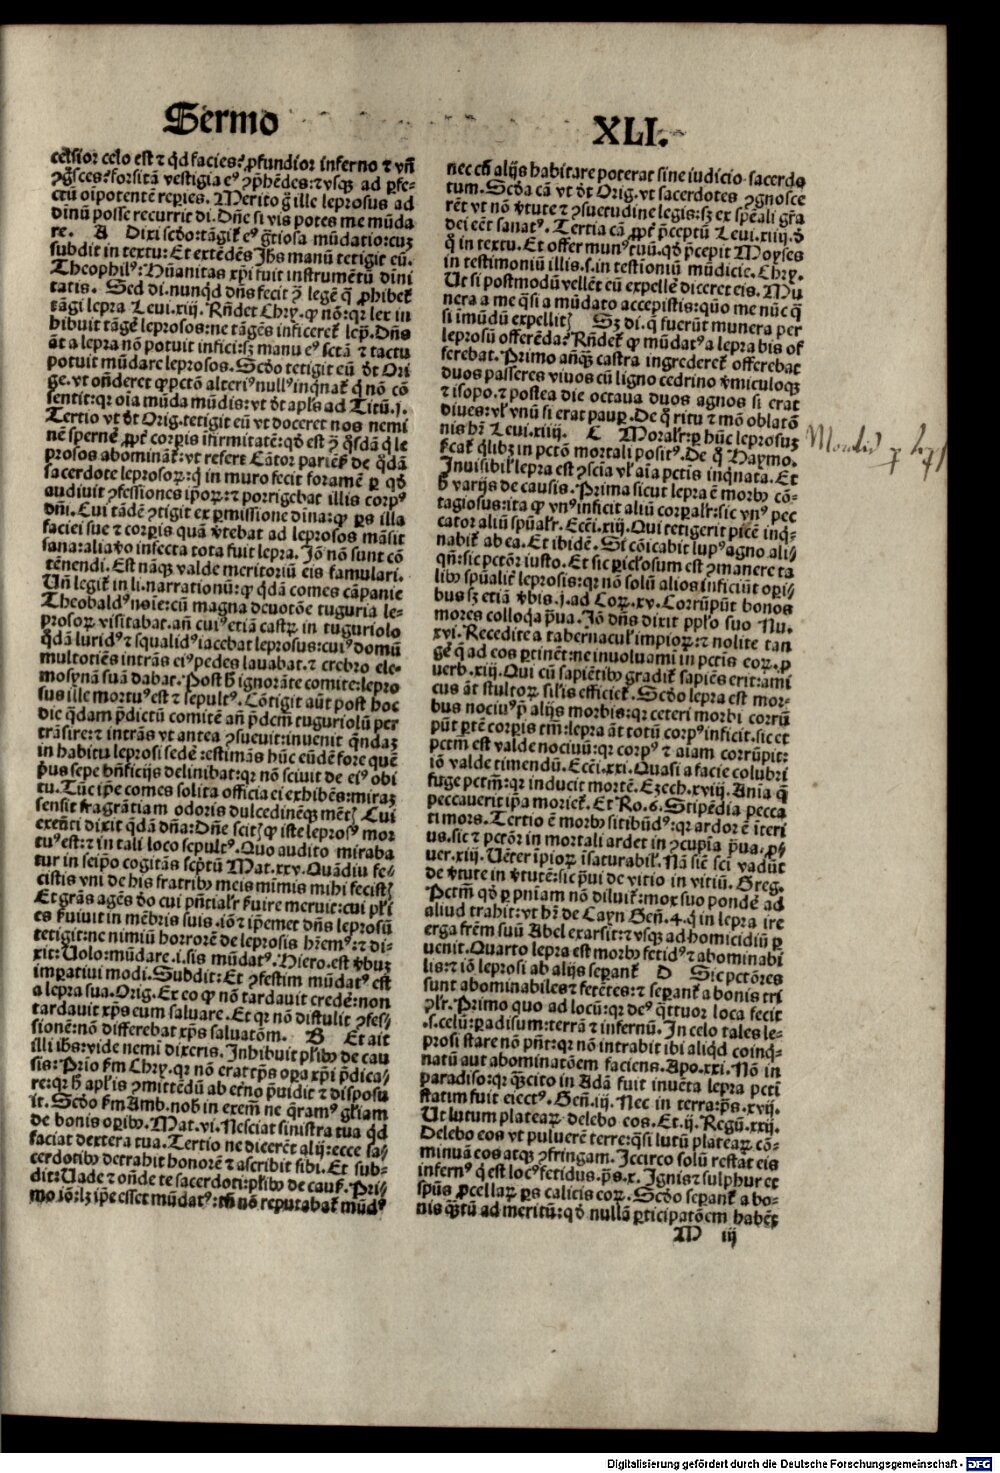 Sermo
XLI.
celsior celo est ⁊ qd facies? ꝓfundior inferno ⁊ vñ
ꝯgsces? forsitã vestigia eꝰ ꝯp̃hẽdes: ⁊ vsqꝫ ad ꝑfe-
ctũ oĩpotentẽ reꝑies. Merito g̃ ille leprosus ad
dinũ posse recurrit di. Dñe si vis potes me mũda
re. A Dixi scd̃o: tãgit̃ eꝰ g̃tiosa mũdatio: cuꝫ
subdit in textu: Et extẽdẽs Jhs manũ tetigit eũ.
Theophilꝰ: Hũanitas xp̃i fuit instrumẽtũ diĩni
tatis. Sed di. nunqd dñs fecit ꝯ̃ legẽ q̃ ꝓhibet
tãgi lepra Leui. xiij. Rñdet Chry. ꝙ nõ: qꝛ lex in
hibuit tãgẽ leprosos: ne tãgẽs inficeret̃ lep̃. Dñs
ãt a lepra nõ potuit infici: sꝫ manu eꝰ scta ⁊ tactu
potuit mũdare leprosos. Scd̃o tetigit eũ vt Ori
ge. vt oñderet ꝙ pctõ alteriꝰ nullꝰ inqnat̃ q̃ nõ cõ
sentit: qꝛ oĩa mũda mũdis: vt d̃t apl̃s ad Titũ. j.
Tertio vt d̃t Orig. tetigit eũ vt doceret nos nemi
nẽ spernẽ ꝓpt̃ corꝑis ĩfirmitatẽ: qd̃ est ꝯ̃ q̃sdã q̃ le
prosos abominãt̃: vt refert Cãtor pariẽs̃ de q̃dã
sacerdote leprosoꝝ: q̃ in muro fecit foramẽ ꝑ qd̃
audiuit ꝯfessiones ip̃oꝝ: ⁊ porrigebat illis corpꝰ
dñi. Cui tãdẽ ꝯtigit ex ꝑmissione diĩna: ꝙ ꝑs illa
faciei sue ⁊ corꝑis quã v̾tebat ad leprosos mãsit
sana: alia v̾o infecta tota fuit lepra. Jõ nõ sunt cõ
tẽnendi. Est nãqꝫ valde meritoriũ eis famulari.
Uñ legit̃ in li. narrationũ: ꝙ q̃dã comes cãpanie
Theobaldꝰ noĩe: cũ magna deuotõe tuguria le-
prosoꝝ visitabat. añ cuiꝰ etiã castꝝ in tuguriolo
q̃dã luridꝰ ⁊ squalidꝰ iacebat leprosus: cuiꝰ domũ
multotiẽs intrãs eiꝰ pedes lauabat. ⁊ crebro ele-
mosynã suã dabat. Post h̃ ignorãte comite: lepro
sus ille mortuꝰ est ⁊ sepultꝰ. Cõtigit aũt post hoc
die q̃dam p̃dictũ comitẽ añ p̃dcm̃ tuguriolũ ꝑ
trãsire: ⁊ intrãs vt antea ꝯsueuit: inuenit q̃ndaꝫ
in habitu leprosi sedẽ: estimãs hũc eũdẽ fore quẽ
p̾us sepe bñficijs delinibat: qꝛ nõ sciuit de eiꝰ obi
tu. Tũc ip̃e comes solita officia ei exhibẽs: miraꝫ
sensit fragrãtiam odoris dulcedinẽqꝫ mẽt. Cui
exeñti dixit q̃dã dña: Dñe scit ꝙ iste leprosꝰ mor
tuꝰ est: ⁊ in tali loco sepultꝰ. Quo audito miraba
tur in seip̃o cogitãs sep̃tũ Mat. xxv. Quãdiu fe-
cistis vni de his fratribꝫ meis mĩmis mihi fecist.
Et gr̃as agẽs d̃o cui p̃ñtialr̃ s̾uire meruit: cui pl̃i
es s̾uiuit in mẽbris suis. iõ ⁊ ip̃emet dñs leprosũ
tetigit: ne nimiũ horrorẽ de leprosis hr̃emꝰ: ⁊ di-
xit: Uolo: mũdare. i. sis mũdatꝰ. Hiero. est v̾buꝫ
imꝑatiui modi. Subdit: Et ꝯfestim mũdatꝰ est
a lepra sua. Orig. Ex eo ꝙ nõ tardauit credẽ: non
tardauit xp̃s eum saluare. Et qꝛ nõ distulit ꝯfes-
sionẽ: nõ differebat xp̃s saluatõm. B Et ait
illi ihs: vide nemĩ dixeris. Inhibuit pl̃ibꝫ de cau
sis: Prĩo ẜm Chry. qꝛ nõ erat tp̃s oꝑa xp̃i p̃dica-
re: qꝛ h̃ apl̃is ꝯmittẽdũ ab et̾no p̃uidit ⁊ disposu
it. Scd̃o ẜm Amb. nob̾ in exem̃ ne q̃ramꝰ gl̃iam
de bonis oꝑibꝫ. Mat. vi. Nesciat sinistra tua qd
faciat dextera tua. Tertio ne dicerẽt alij: ecce sa-
cerdotibꝫ detrahit honorẽ ⁊ ascribit sibi. Et sub-
dit: Uade ⁊ oñde te sacerdoti: pl̃ibꝫ de caus̃. Pri-
mo iõ: lꝫ ip̃e esset mũdatꝰ: tñ nõ reputabat̃ mũdꝰ
nec cũ alijs habitare poterat sine iudicio sacerdo
tum. Scd̃a cã vt d̃t Orig. vt sacerdotes ꝯgnosce
rẽt vt nõ v̾tute ⁊ ꝯsuetudine legis: sꝫ ex sp̃eali gr̃a
dei eẽt sanatꝰ. Tertia cã ꝓpt̃ p̃ceptũ Leui. xiiij. d̃
q̃ in textu. Et offer munꝰ tuũ. qd̃ p̃cepit Moyses
in testimoniũ illis. s. in testioniũ mũdicie. Chry.
Ut si postmodũ vellẽt eũ expellẽ diceret eis. Mu
nera a me q̃si a mũdato accepistis: quo me nũc q̃
si imũdũ expellit. Sꝫ di. q̃ fuerũt munera per
leprosũ offerẽda? Rñdet̃ ꝙ mũdatꝰ a lepra bis of
ferebat. Primo añqꝫ castra ingrederet̃ offerebat
duos passeres viuos cũ ligno cedrino v̾miculoqꝫ
⁊ isopo. ⁊ postea die octaua duos agnos si erat
diues: vl̾ vnũ si erat pauꝑ. De q̃ ritu ⁊ mõ oblatõ
nis hr̃ Leui. xiiij. C Moralr̃: ꝑ hũc leprosuꝫ
s̾cat̃ q̃libꝫ in pctõ mortali positꝰ. De q̃ Haymo.
Inuisibil̾ lepra est ꝯscia vl̾ aĩa pctis inqnata. Et
h̃ varijs de causis. Prima sicut lepra ẽ morbꝫ cõ-
tagiosus: ita ꝙ vnꝰ inficit aliũ corꝑalr̃: sic vnꝰ pec
cator aliũ spũalr̃. Ecci. xiij. Qui tetigerit picẽ inq-
nabit̃ ab ea. Et ibidẽ. Si cõicabit lupꝰ agno ali-
qñ: sic pctõr iusto. Et sic ꝑiclosum est ꝯmanere ta
libꝫ spũalit̃ leprosis: qꝛ nõ solũ alios inficiũt oꝑi-
bus sꝫ etiã v̾bis. j. ad Coꝝ. xv. Corrũpũt bonos
mores colloqa p̾ua. Jõ dñs dixit pplo suo Nu.
xvi. Recedite a tabernacul̾ impioꝝ: ⁊ nolite tan
gẽ q̃ ad eos ꝑtinẽt: ne inuoluami in pctis eoꝝ. ꝓ
uerb. xiij. Qui cũ sapiẽtibꝫ gradit̃ sapiẽs erit: ami
cus ãt stultoꝝ sil̾is efficiet̃. Scd̃o lepra est mor-
bus nociuꝰ p̃ alijs morbis: qꝛ ceteri morbi corrũ
pũt ꝑtẽ corꝑis tm̃: lepra ãt totũ corpꝰ inficit. sic et
pctm̃ est valde nociuũ: qꝛ corpꝰ ⁊ aĩam corrũpit:
iõ valde timendũ. Ecci. xxi. Quasi a facie colubri
fuge pctm̃: qꝛ inducit mortẽ. Ezech. xviij. Aĩa q̃
peccauerit ip̃a moriet̃. Et Ro. 6. Stipẽdia pecca
ti mors. Tertio ẽ morbꝫ sitibũdꝰ: qꝛ ardor ẽ ĩteri
us. sic ⁊ pctõr in mortali ardet in ꝯcupĩa p̾ua. ꝓ-
uer. xiij. Uẽter ĩpioꝝ ĩsaturabil̾. Nã sicẽ sci vadũt
de v̾tute in v̾tutẽ: sic p̾ui de vitio in vitiũ. Greg.
Pctm̃ qd̃ ꝑ pñiam nõ diluit̃: mox suo pondẽ ad
aliud trahit: vt hr̃ de Cayn Geñ. 4. q̃ in lepra ire
erga frẽm suũ Abel exarsit: ⁊ vsqꝫ ad homicidiũ ꝑ
uenit. Quarto lepra est morbꝫ fetidꝰ ⁊ abominabi
lis: ⁊ iõ leprosi ab alijs seꝑant̃ D Sic pctõres
sunt abominabiles ⁊ fetẽtes: ⁊ seꝑant̃ a bonis tri
pl̾r. Primo quo ad locũ: qꝛ deꝰ q̃ttuor loca fecit
.s. celũ: ꝑadisum: terrã ⁊ infernũ. In celo tales le-
prosi stare nõ pñt: qꝛ nõ intrabit ibi aliqd coinq-
natũ aut abominatõem faciens. Apo. xxi. Nõ in
paradiso: qꝛ q̃scito in Adã fuit inuẽta lepra pcti
statim fuit eiectꝰ. Geñ. iij. Nec in terra: ps̃. xvij.
Ut lutum plateaꝝ delebo eos. Et. ij. Regũ. xxij.
Delebo eos vt puluerẽ terre: q̃si lutũ plateaꝝ cõ-
minuã eos atqꝫ ꝯfringam. Iccirco solũ restat eis
infernꝰ q̃ est locꝰ fetidus. ps̃. x. Ignis ⁊ sulphur et
spũs ꝓcellaꝝ ꝑs calicis eoꝝ. Scd̃o seꝑant̃ a bo-
nis q̃tũ ad meritũ: qd̃ nullã ꝑticipatõem habẽt
M iij
Digitalisierung gefördert durch die Deutsche Forschungsgemeinschaft - DFG